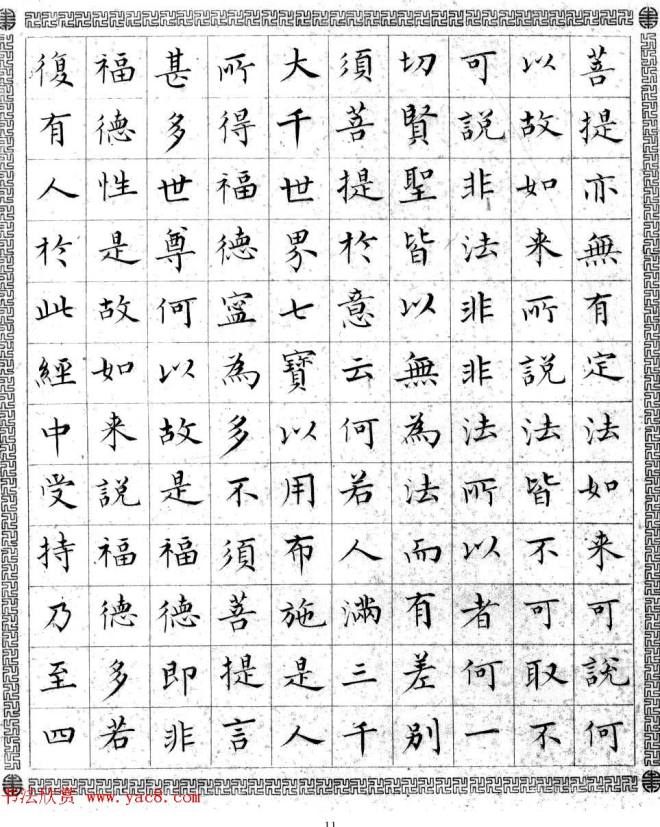 菩提亦無有定法如来可說何
以故如来所說法皆不可取不
可說非法非非法所以者何一
切賢聖皆以無為法而有差別
須菩提於意云何若人滿三千
大千世界七寶以用布施是人
所得福德寧為多不須菩提言
甚多世尊何以故是福德即非
福德性是故如来說福德多若
復有人於此經中受持乃至四
书法欣赏 www.yac8.com
11